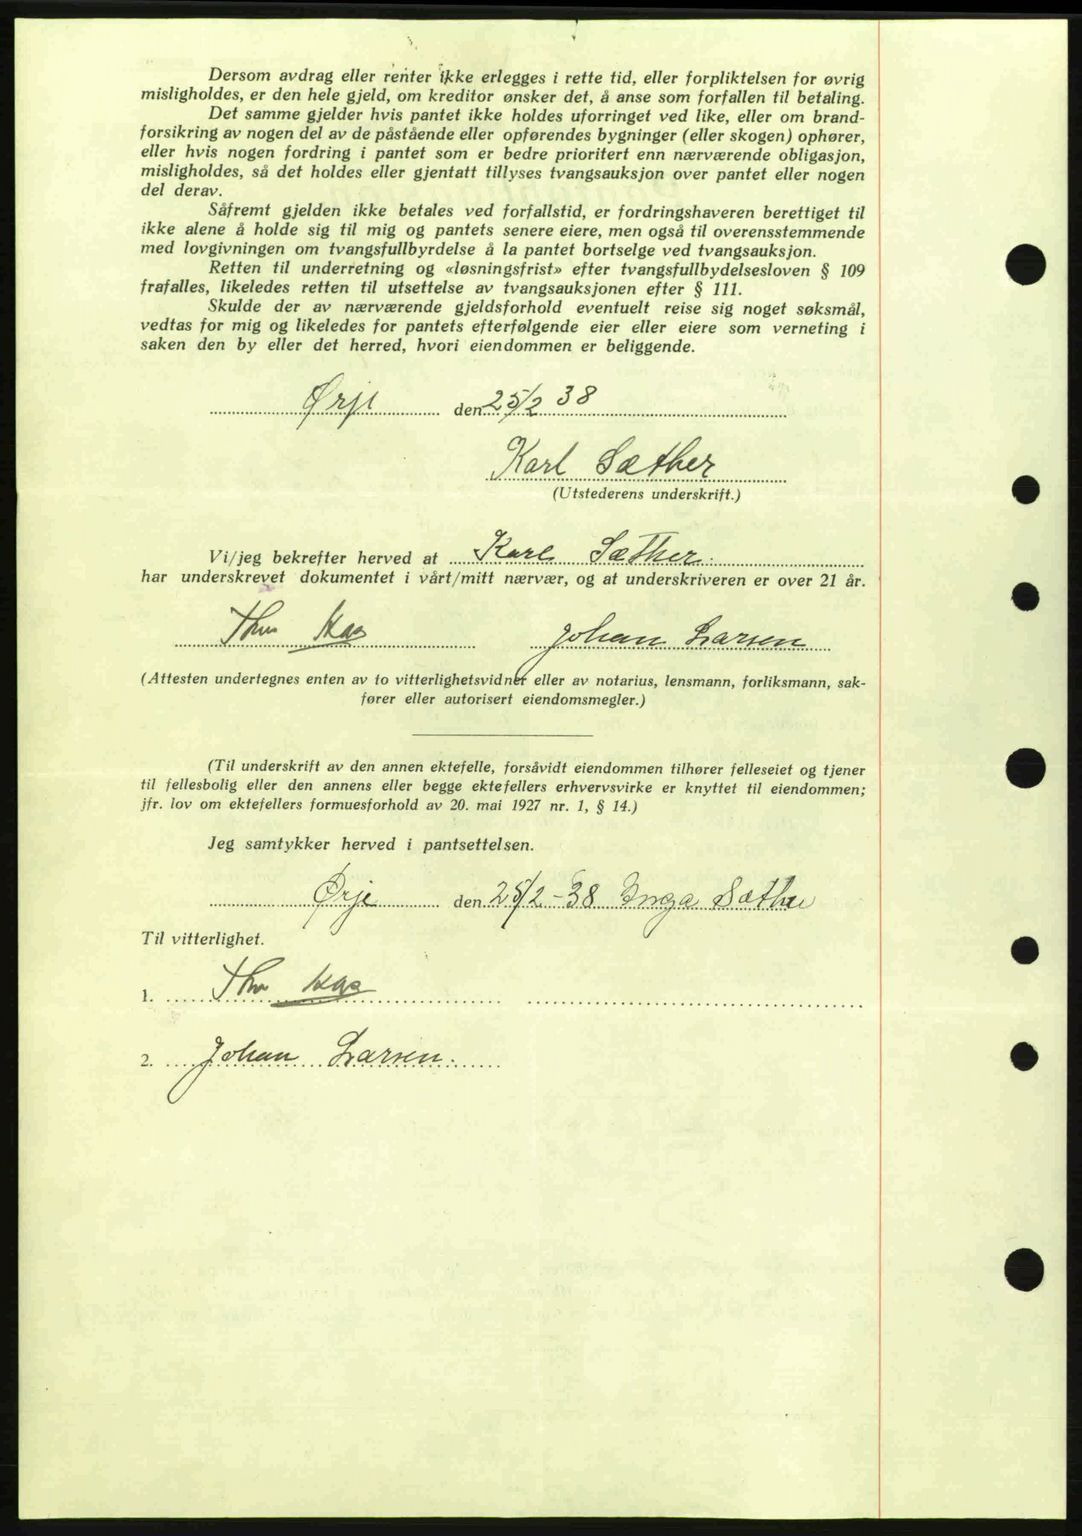 Dersom avdrag eller renter ikke erlegges i rette tid, eller forpliktelsen for øvrig
misligholdes, er den hele gjeld, om kreditor ønsker det, å anse som forfallen til betaling.
Det samme gjelder hvis pantet ikke holdes uforringet ved like, eller om brand-
forsikring av nogen del av de påstående eller opførendes bygninger (eller skogen) ophører,
eller hvis nogen fordring i pantet som er bedre prioritert enn nærværende obligasjon,
misligholdes, så det holdes eller gjentatt tillyses tvangsauksjon over pantet eller nogen
del derav.
Såfremt gjelden ikke betales ved forfallstid, er fordringshaveren berettiget til
ikke alene å holde sig til mig og pantets senere eiere, men også til overensstemmende
med lovgivningen om tvangsfullbyrdelse å la pantet bortselge ved tvangsauksjon.
Retten til underretning og «løsningsfrist» efter tvangsfullbydelsesloven § 109
frafalles, likeledes retten til utsettelse av tvangsauksjonen efter § 111.
Skulde der av nærværende gjeldsforhold eventuelt reise sig noget søksmål,
vedtas for mig og likeledes for pantets efterfølgende eier eller eiere som verneting i
saken den by eller det herred, hvori eiendommen er beliggende.
Ørje den 25/2 38
Karl Sæther
(Utstederens underskrift.)
Vi/jeg bekrefter herved at Karl Sæther.
har underskrevet dokumentet i vårt/mitt nærvær, og at underskriveren er over 21 år.
Thv Kaa Johan Larsen
(Attesten undertegnes enten av to vitterlighetsvidner eller av notarius, lensmann, forliksmann, sak-
fører eller autorisert eiendomsmegler.)
(Til underskrift av den annen ektefelle, forsåvidt eiendommen tilhører felleseiet og tjener
til fellesbolig eller den annens eller begge ektefellers erhvervsvirke er knyttet til eiendommen;
jfr. lov om ektefellers formuesforhold av 20. mai 1927 nr. 1, § 14.)
Jeg samtykker herved i pantsettelsen.
Ørje den 25/2-38 Inga Sæther
Til vitterlighet.
1. Thv Kaa
2. Johan Larsen.